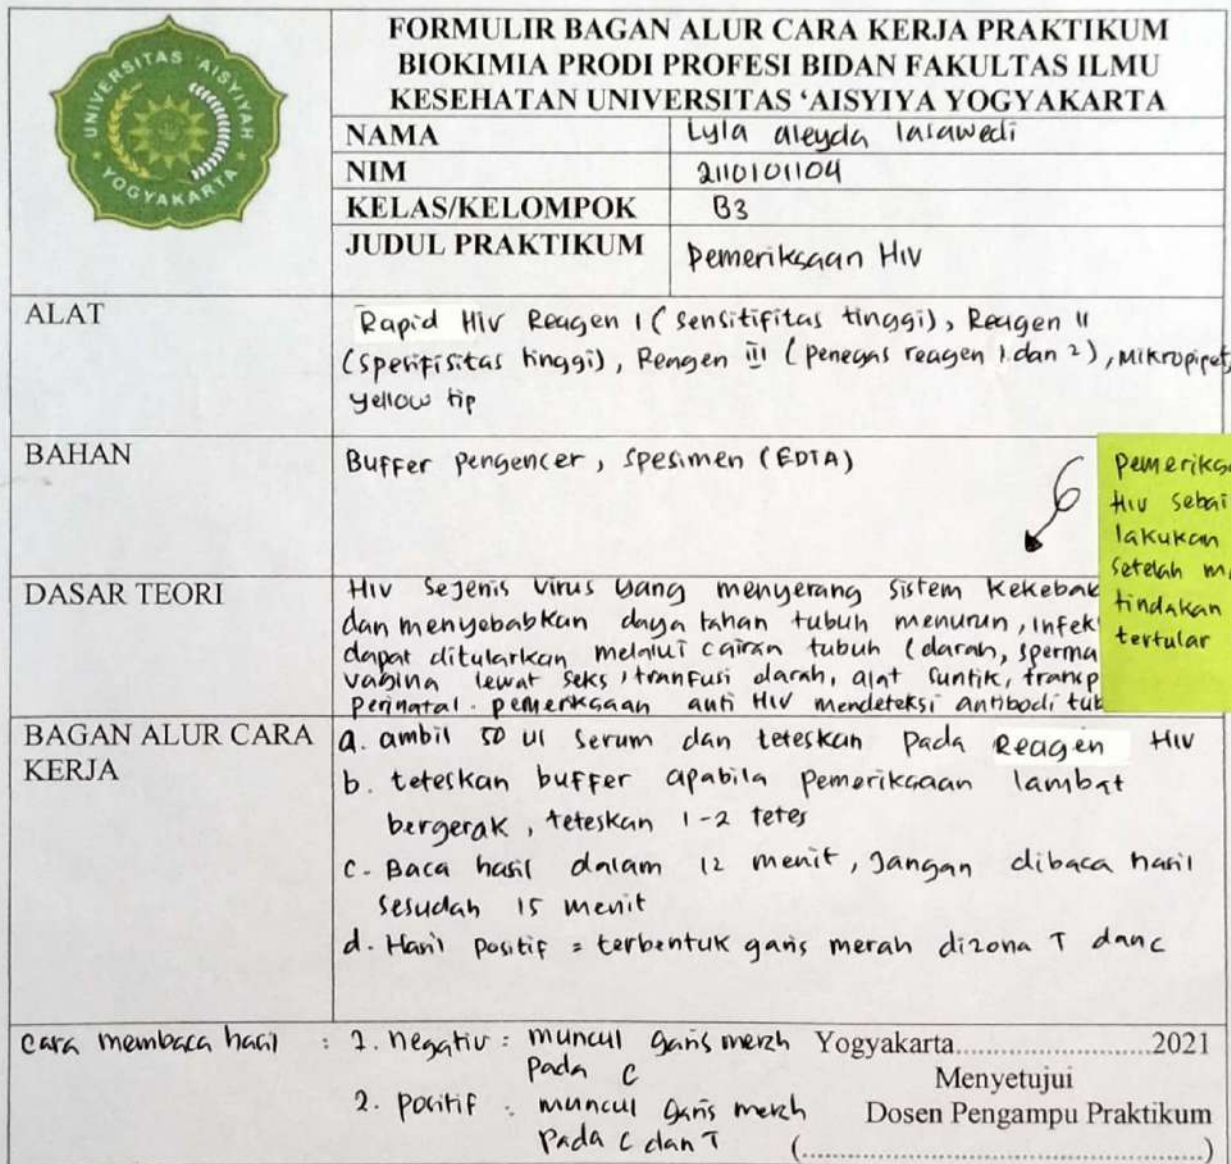 UNIVERSITAS 'AISYIYAH
YOGYAKARTA
FORMULIR BAGAN ALUR CARA KERJA PRAKTIKUM
BIOKIMIA PRODI PROFESI BIDAN FAKULTAS ILMU
KESEHATAN UNIVERSITAS ‘AISYIYA YOGYAKARTA
NAMA Lyla aleyda lasawedi
NIM 2110101104
KELAS/KELOMPOK B3
JUDUL PRAKTIKUM Pemeriksaan HIV
ALAT Rapid Hiv Reagen I (sensitifitas tinggi), Reagen II
(spesifisitas tinggi), Reagen III (penegas reagen 1 dan 2), Mikropipet,
yellow tip
BAHAN Buffer pengencer, spesimen (EDTA)
pemeriksa
HIV sebai
lakukan
setelah m
tindakan
tertular
DASAR TEORI Hiv sejenis virus yang menyerang sistem kekebak
dan menyebabkan daya tahan tubuh menurun, infek
dapat ditularkan melalui cairan tubuh (darah, sperma
vagina lewat seks, tranfusi darah, alat suntik, transp
perinatal. pemeriksaan anti HIV mendeteksi antibodi tub
BAGAN ALUR CARA KERJA
a. ambil 50 ul serum dan teteskan pada Reagen HIV
b. teteskan buffer apabila pemeriksaan lambat
bergerak, teteskan 1-2 tetes
c. Baca hasil dalam 12 menit, Jangan dibaca hasil
sesudah 15 menit
d. Hasil positif = terbentuk garis merah dizona T dan c
cara membaca hasil : 1. negativ : muncul garis merah
pada c
2. positif : muncul garis merah
pada c dan T
Yogyakarta..........................2021
Menyetujui
Dosen Pengampu Praktikum
(..................................................)